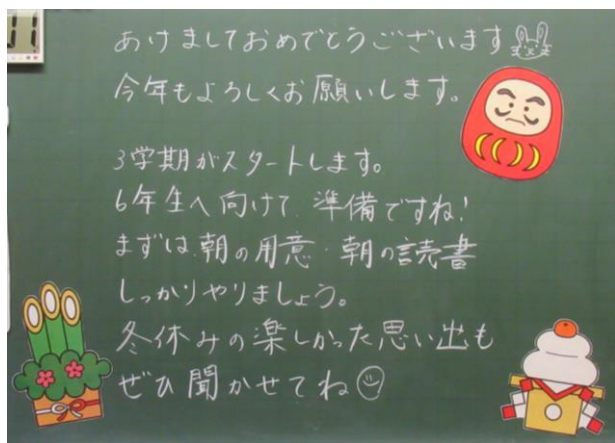 あけましておめでとうございます
今年もよろしくお願いします。
3学期がスタートします。
6年生へ向けて、準備ですね!
まずは、朝の用意・朝の読書
しっかりやりましょう。
冬休みの楽しかった思い出も
ぜひ聞かせてね